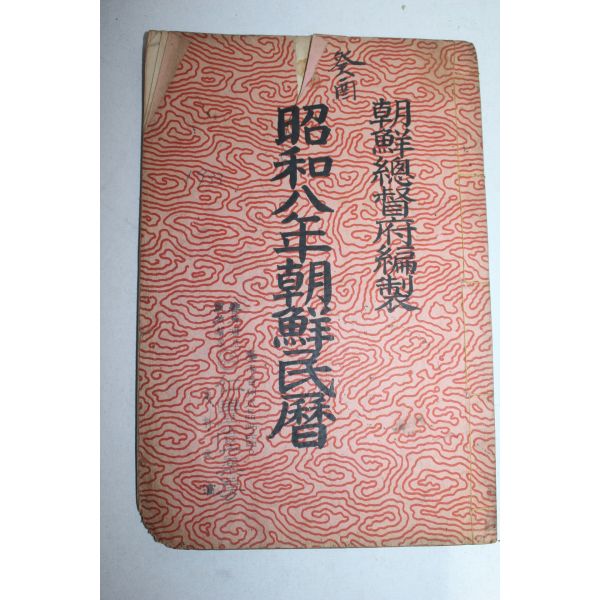 癸酉
朝鮮總督府編製
昭和八年朝鮮民曆